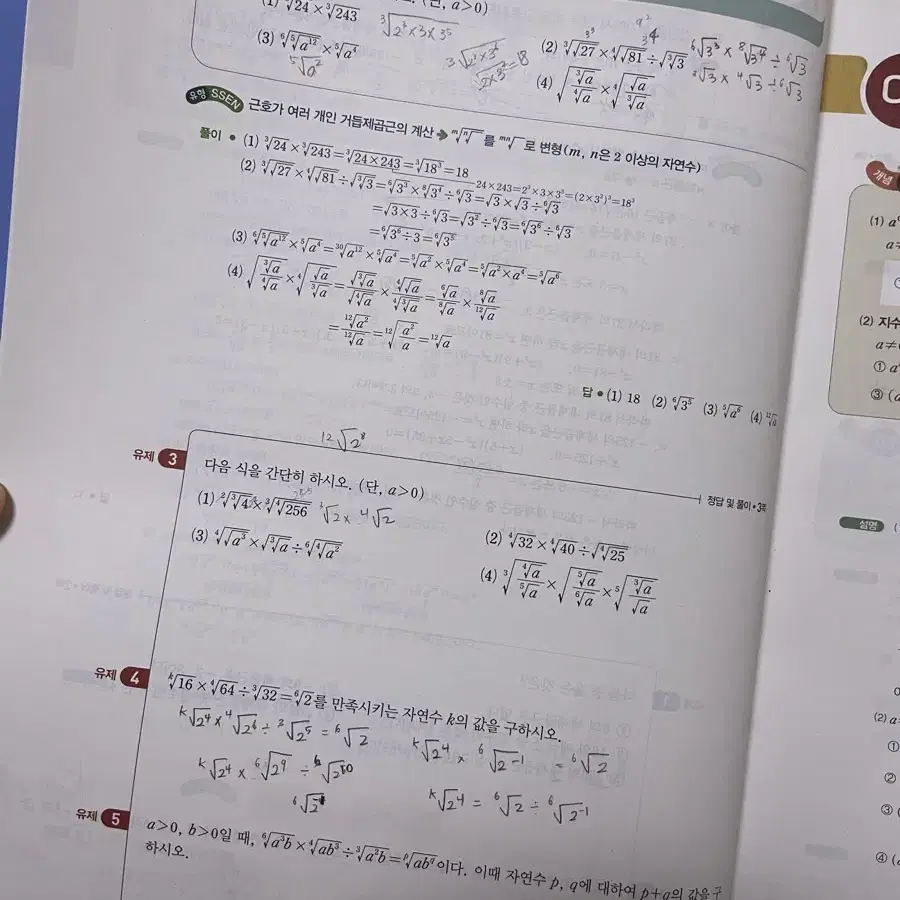 (1) ∛24 × ∛243
∛(2³×3×3⁵)
(단, a>0)
(3) ⁶√⁵√a¹² × ⁵√a⁴
⁵√a²
(2) ∛√27 × ⁴√√81 ÷ √∛3
⁶√3³ × ⁸√3⁴ ÷ ⁶√3
(4) √(∛a/⁴√a) × ⁴√(√a/∛a)
유형 SSEN 근호가 여러 개인 거듭제곱근의 계산 → ᵐ√ⁿ√ 를 ᵐⁿ√ 로 변형(m, n은 2 이상의 자연수)
풀이 • (1) ∛24 × ∛243 = ∛(24×243) = ∛18³ = 18
24×243=2³×3×3⁵=(2×3²)³=18³
(2) ∛√27 × ⁴√√81 ÷ √∛3 = ⁶√3³ × ⁸√3⁴ ÷ ⁶√3 = √3 × √3 ÷ ⁶√3
= √(3×3) ÷ ⁶√3 = √3² ÷ ⁶√3 = ⁶√3⁶ ÷ ⁶√3
= ⁶√(3⁶÷3) = ⁶√3⁵
(3) ⁶√⁵√a¹² × ⁵√a⁴ = ³⁰√a¹² × ⁵√a⁴ = ⁵√a² × ⁵√a⁴ = ⁵√(a²×a⁴) = ⁵√a⁶
(4) √(∛a/⁴√a) × ⁴√(√a/∛a) = √∛a/√⁴√a × ⁴√√a/⁴√∛a = ⁶√a/⁸√a × ⁸√a/¹²√a
= ¹²√a²/¹²√a = ¹²√(a²/a) = ¹²√a
답 • (1) 18 (2) ⁶√3⁵ (3) ⁵√a⁶ (4) ¹²√a
¹²√2⁸
유제 3 다음 식을 간단히 하시오. (단, a>0)
정답 및 풀이 • 3쪽
(1) ∛4 × ∛⁴√256
∛2 × ⁴√2
(2) ⁴√32 × ⁴√40 ÷ √⁴√25
(3) ⁴√√a³ × √∛a ÷ ⁶√⁴√a²
(4) ∛(⁴√a/⁵√a) × √(⁵√a/⁶√a) × ⁵√(∛a/√a)
유제 4 ᵏ√16 × ⁴√64 ÷ ∛32 = ⁶√2를 만족시키는 자연수 k의 값을 구하시오.
ᵏ√2⁴ × ⁴√2⁶ ÷ ³√2⁵ = ⁶√2
ᵏ√2⁴ × ⁶√2⁻¹ = ⁶√2
ᵏ√2⁴ × ⁶√2⁹ ÷ ⁶√2¹⁰
ᵏ√2⁴ = ⁶√2 ÷ ⁶√2⁻¹
유제 5 a>0, b>0일 때, ⁶√a³b × ⁴√ab³ ÷ ∛a²b = ᵖ√abᑫ이다. 이때 자연수 p, q에 대하여 p+q의 값을 구
하시오.
개념
(1) a
(2) 지수
a≠
① a
③ (a
설명
(2) a
①
②
③
④ (